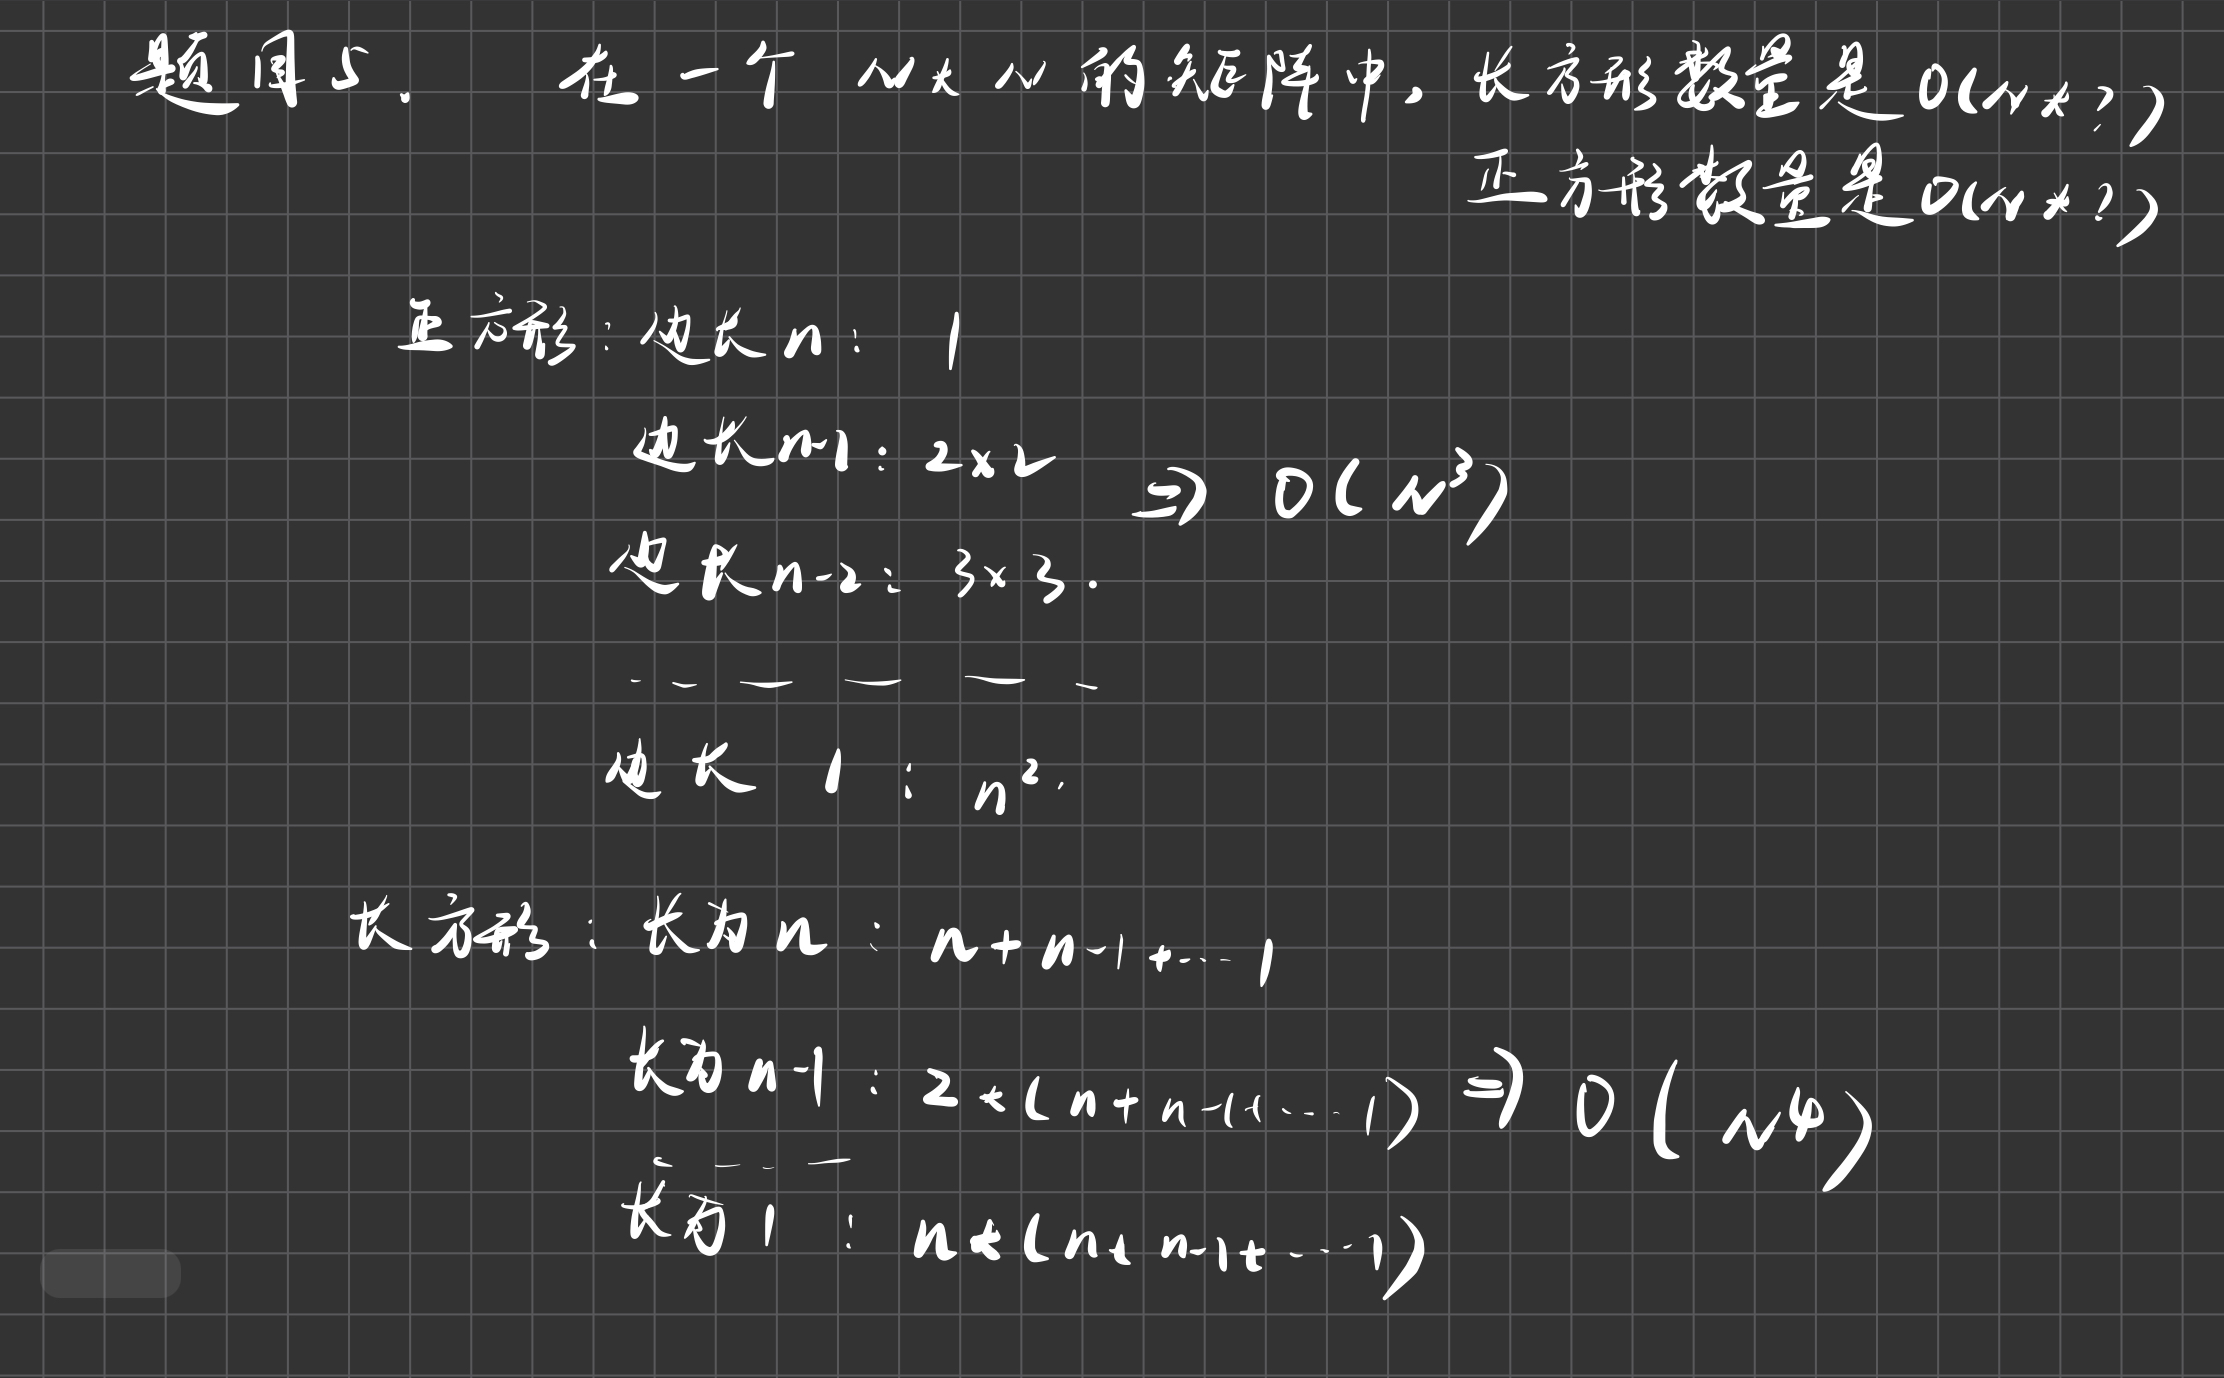 题目5. 在一个 N*N 的矩阵中, 长方形数量是 O(N*?)
正方形数量是 O(N*?)
正方形: 边长 n: 1
边长 n-1: 2×2
⇒ O(N³)
边长 n-2: 3×3.
- - - - - -
边长 1: n².
长方形: 长为 n: n+n-1+...1
长为 n-1: 2*(n+n-1+...1) ⇒ O(N⁴)
- - - -
长为 1: n*(n+n-1+...1)